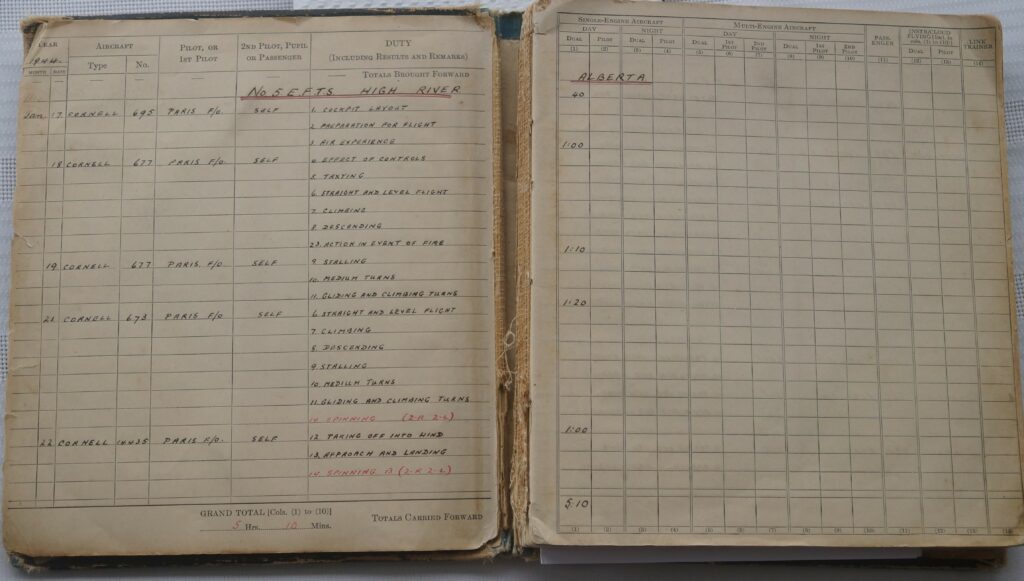 YEAR
AIRCRAFT
PILOT, OR 1ST PILOT
2ND PILOT, PUPIL OR PASSENGER
DUTY (INCLUDING RESULTS AND REMARKS)
1944
MONTH DATE Type No.
— — — TOTALS BROUGHT FORWARD
No 5 E.F.T.S HIGH RIVER
Jan. 17 CORNELL 695 PARIS F/O. SELF 1. COCKPIT LAYOUT
2. PREPARATION FOR FLIGHT
3. AIR EXPERIENCE
18 CORNELL 677 PARIS F/O. SELF 4. EFFECT OF CONTROLS
5. TAXYING
6. STRAIGHT AND LEVEL FLIGHT
7. CLIMBING
8. DESCENDING
23. ACTION IN EVENT OF FIRE
19 CORNELL 677 PARIS. F/O SELF 9. STALLING
10. MEDIUM TURNS
11. GLIDING AND CLIMBING TURNS
21 CORNELL 673 PARIS F/O SELF 6. STRAIGHT AND LEVEL FLIGHT
7. CLIMBING
8. DESCENDING
9. STALLING
10. MEDIUM TURNS
11. GLIDING AND CLIMBING TURNS
14. SPINNING (2-R 2-L)
22 CORNELL PARIS F/O. SELF 12. TAKING OFF INTO WIND
13. APPROACH AND LANDING
14. SPINNING B (2-R 2-L)
GRAND TOTAL [Cols. (1) to (10)]
5 Hrs. 10 Mins.
TOTALS CARRIED FORWARD
SINGLE-ENGINE AIRCRAFT MULTI-ENGINE AIRCRAFT PASS-ENGER INSTR/CLOUD FLYING [Incl. in cols. (1) to (10)] LINK TRAINER
DAY NIGHT DAY NIGHT
DUAL PILOT DUAL PILOT DUAL 1ST PILOT 2ND PILOT DUAL 1ST PILOT 2ND PILOT DUAL PILOT
(1) (2) (3) (4) (5) (6) (7) (8) (9) (10) (11) (12) (13) (14)
ALBERTA
40
1:00
1:10
1:20
1:00
5.10
(1) (2) (3) (4) (5) (6) (7) (8) (9) (10) (11) (12) (13) (14)